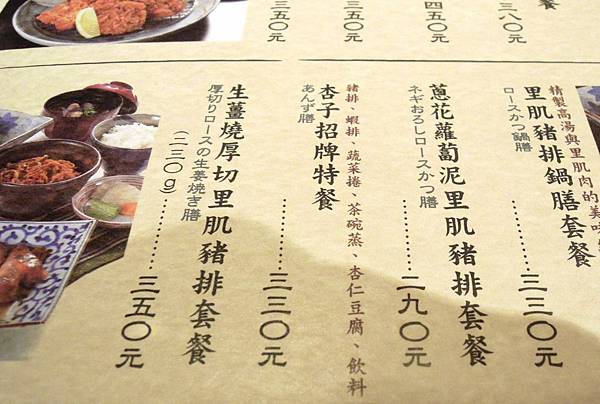 三八〇元
四五〇元
三五〇元
三五〇元
精製高湯與里肌肉的美味
里肌豬排鍋膳套餐
ロースかつ鍋膳
三三〇元
蔥花蘿蔔泥里肌豬排套餐
ネギおろしロースかつ膳
二九〇元
豬排、蝦排、蔬菜捲、茶碗蒸、杏仁豆腐、飲料
杏子招牌特餐
あんず膳
三三〇元
生薑燒厚切里肌豬排套餐
厚切りロースの生姜焼き膳
(二三〇g)
三五〇元